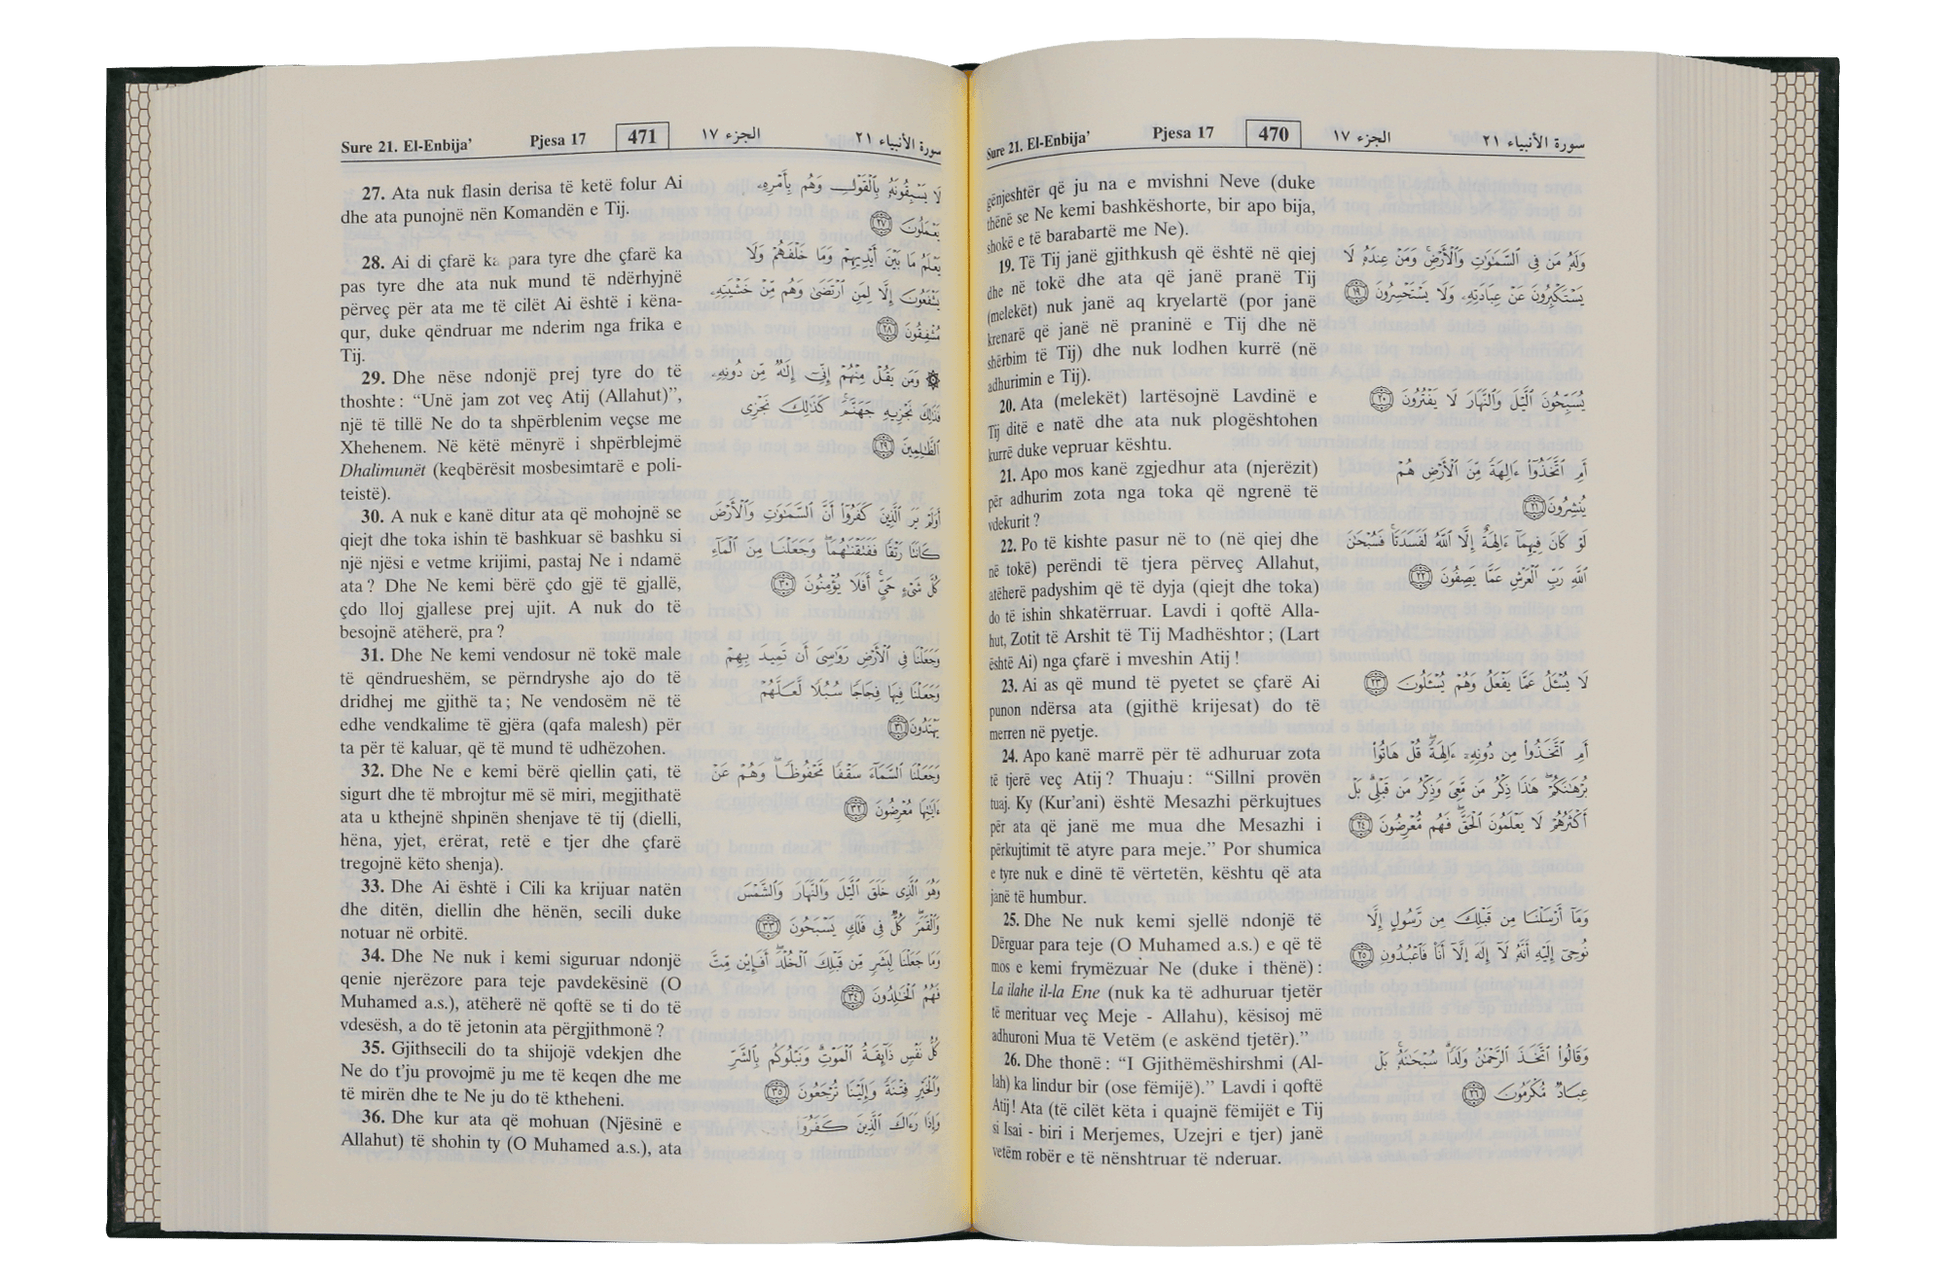 Sure 21. El-Enbija’ Pjesa 17 470 الجزء ١٧ سورة الأنبياء ٢١
gënjeshtër që ju na e mvishni Neve (duke
thënë se Ne kemi bashkëshorte, bir apo bija,
shokë e të barabartë me Ne).
19. Të Tij janë gjithkush që është në qiej
dhe në tokë dhe ata që janë pranë Tij
(melekët) nuk janë aq kryelartë (por janë
krenarë që janë në praninë e Tij dhe në
shërbim të Tij) dhe nuk lodhen kurrë (në
adhurimin e Tij).
20. Ata (melekët) lartësojnë Lavdinë e
Tij ditë e natë dhe ata nuk plogështohen
kurrë duke vepruar kështu.
21. Apo mos kanë zgjedhur ata (njerëzit)
për adhurim zota nga toka që ngrenë të
vdekurit ?
22. Po të kishte pasur në to (në qiej dhe
në tokë) perëndi të tjera përveç Allahut,
atëherë padyshim që të dyja (qiejt dhe toka)
do të ishin shkatërruar. Lavdi i qoftë Alla-
hut, Zotit të Arshit të Tij Madhështor ; (Lart
është Ai) nga çfarë i mveshin Atij !
23. Ai as që mund të pyetet se çfarë Ai
punon ndërsa ata (gjithë krijesat) do të
merren në pyetje.
24. Apo kanë marrë për të adhuruar zota
të tjerë veç Atij ? Thuaju : “Sillni provën
tuaj. Ky (Kur’ani) është Mesazhi përkujtues
për ata që janë me mua dhe Mesazhi i
përkujtimit të atyre para meje.” Por shumica
e tyre nuk e dinë të vërtetën, kështu që ata
janë të humbur.
25. Dhe Ne nuk kemi sjellë ndonjë të
Dërguar para teje (O Muhamed a.s.) e që të
mos e kemi frymëzuar Ne (duke i thënë) :
La ilahe il-la Ene (nuk ka të adhuruar tjetër
të merituar veç Meje - Allahu), kësisoj më
adhuroni Mua të Vetëm (e askënd tjetër).”
26. Dhe thonë : “I Gjithëmëshirshmi (Al-
lah) ka lindur bir (ose fëmijë).” Lavdi i qoftë
Atij! Ata (të cilët këta i quajnë fëmijët e Tij
si Isai - biri i Merjemes, Uzejri e tjer) janë
vetëm robër e të nënshtruar të nderuar.
وَلَهُۥ مَن فِى ٱلسَّمَٰوَٰتِ وَٱلْأَرْضِ ۚ وَمَنْ عِندَهُۥ لَا
يَسْتَكْبِرُونَ عَنْ عِبَادَتِهِۦ وَلَا يَسْتَحْسِرُونَ ١٩
يُسَبِّحُونَ ٱلَّيْلَ وَٱلنَّهَارَ لَا يَفْتُرُونَ ٢٠
أَمِ ٱتَّخَذُوٓا۟ ءَالِهَةً مِّنَ ٱلْأَرْضِ هُمْ
يُنشِرُونَ ٢١
لَوْ كَانَ فِيهِمَآ ءَالِهَةٌ إِلَّا ٱللَّهُ لَفَسَدَتَا ۚ فَسُبْحَٰنَ
ٱللَّهِ رَبِّ ٱلْعَرْشِ عَمَّا يَصِفُونَ ٢٢
لَا يُسْـَٔلُ عَمَّا يَفْعَلُ وَهُمْ يُسْـَٔلُونَ ٢٣
أَمِ ٱتَّخَذُوا۟ مِن دُونِهِۦٓ ءَالِهَةً ۖ قُلْ هَاتُوا۟
بُرْهَٰنَكُمْ ۖ هَٰذَا ذِكْرُ مَن مَّعِىَ وَذِكْرُ مَن قَبْلِى ۗ بَلْ
أَكْثَرُهُمْ لَا يَعْلَمُونَ ٱلْحَقَّ ۖ فَهُم مُّعْرِضُونَ ٢٤
وَمَآ أَرْسَلْنَا مِن قَبْلِكَ مِن رَّسُولٍ إِلَّا
نُوحِىٓ إِلَيْهِ أَنَّهُۥ لَآ إِلَٰهَ إِلَّآ أَنَا۠ فَٱعْبُدُونِ ٢٥
وَقَالُوا۟ ٱتَّخَذَ ٱلرَّحْمَٰنُ وَلَدًا ۗ سُبْحَٰنَهُۥ ۚ بَلْ
عِبَادٌ مُّكْرَمُونَ ٢٦
Sure 21. El-Enbija’ Pjesa 17 471 الجزء ١٧ سورة الأنبياء ٢١
27. Ata nuk flasin derisa të ketë folur Ai
dhe ata punojnë nën Komandën e Tij.
28. Ai di çfarë ka para tyre dhe çfarë ka
pas tyre dhe ata nuk mund të ndërhyjnë
përveç për ata me të cilët Ai është i këna-
qur, duke qëndruar me nderim nga frika e
Tij.
29. Dhe nëse ndonjë prej tyre do të
thoshte : “Unë jam zot veç Atij (Allahut)”,
një të tillë Ne do ta shpërblenim veçse me
Xhehenem. Në këtë mënyrë i shpërblejmë
Dhalimunët (keqbërësit mosbesimtarë e poli-
teistë).
30. A nuk e kanë ditur ata që mohojnë se
qiejt dhe toka ishin të bashkuar së bashku si
një njësi e vetme krijimi, pastaj Ne i ndamë
ata ? Dhe Ne kemi bërë çdo gjë të gjallë,
çdo lloj gjallese prej ujit. A nuk do të
besojnë atëherë, pra ?
31. Dhe Ne kemi vendosur në tokë male
të qëndrueshëm, se përndryshe ajo do të
dridhej me gjithë ta ; Ne vendosëm në të
edhe vendkalime të gjëra (qafa malesh) për
ta për të kaluar, që të mund të udhëzohen.
32. Dhe Ne e kemi bërë qiellin çati, të
sigurt dhe të mbrojtur më së miri, megjithatë
ata u kthejnë shpinën shenjave të tij (dielli,
hëna, yjet, erërat, retë e tjer dhe çfarë
tregojnë këto shenja).
33. Dhe Ai është i Cili ka krijuar natën
dhe ditën, diellin dhe hënën, secili duke
notuar në orbitë.
34. Dhe Ne nuk i kemi siguruar ndonjë
qenie njerëzore para teje pavdekësinë (O
Muhamed a.s.), atëherë në qoftë se ti do të
vdesësh, a do të jetonin ata përgjithmonë ?
35. Gjithsecili do ta shijojë vdekjen dhe
Ne do t’ju provojmë ju me të keqen dhe me
të mirën dhe te Ne ju do të ktheheni.
36. Dhe kur ata që mohuan (Njësinë e
Allahut) të shohin ty (O Muhamed a.s.), ata
لَا يَسْبِقُونَهُۥ بِٱلْقَوْلِ وَهُم بِأَمْرِهِۦ
يَعْمَلُونَ ٢٧
يَعْلَمُ مَا بَيْنَ أَيْدِيهِمْ وَمَا خَلْفَهُمْ وَلَا
يَشْفَعُونَ إِلَّا لِمَنِ ٱرْتَضَىٰ وَهُم مِّنْ خَشْيَتِهِۦ
مُشْفِقُونَ ٢٨
۞ وَمَن يَقُلْ مِنْهُمْ إِنِّىٓ إِلَٰهٌ مِّن دُونِهِۦ
فَذَٰلِكَ نَجْزِيهِ جَهَنَّمَ ۚ كَذَٰلِكَ نَجْزِى
ٱلظَّٰلِمِينَ ٢٩
أَوَلَمْ يَرَ ٱلَّذِينَ كَفَرُوٓا۟ أَنَّ ٱلسَّمَٰوَٰتِ وَٱلْأَرْضَ
كَانَتَا رَتْقًا فَفَتَقْنَٰهُمَا ۖ وَجَعَلْنَا مِنَ ٱلْمَآءِ
كُلَّ شَىْءٍ حَىٍّ ۖ أَفَلَا يُؤْمِنُونَ ٣٠
وَجَعَلْنَا فِى ٱلْأَرْضِ رَوَٰسِىَ أَن تَمِيدَ بِهِمْ
وَجَعَلْنَا فِيهَا فِجَاجًا سُبُلًا لَّعَلَّهُمْ
يَهْتَدُونَ ٣١
وَجَعَلْنَا ٱلسَّمَآءَ سَقْفًا مَّحْفُوظًا ۖ وَهُمْ عَنْ
ءَايَٰتِهَا مُعْرِضُونَ ٣٢
وَهُوَ ٱلَّذِى خَلَقَ ٱلَّيْلَ وَٱلنَّهَارَ وَٱلشَّمْسَ
وَٱلْقَمَرَ ۖ كُلٌّ فِى فَلَكٍ يَسْبَحُونَ ٣٣
وَمَا جَعَلْنَا لِبَشَرٍ مِّن قَبْلِكَ ٱلْخُلْدَ ۖ أَفَإِي۟ن مِّتَّ
فَهُمُ ٱلْخَٰلِدُونَ ٣٤
كُلُّ نَفْسٍ ذَآئِقَةُ ٱلْمَوْتِ ۗ وَنَبْلُوكُم بِٱلشَّرِّ
وَٱلْخَيْرِ فِتْنَةً ۖ وَإِلَيْنَا تُرْجَعُونَ ٣٥
وَإِذَا رَءَاكَ ٱلَّذِينَ كَفَرُوٓا۟